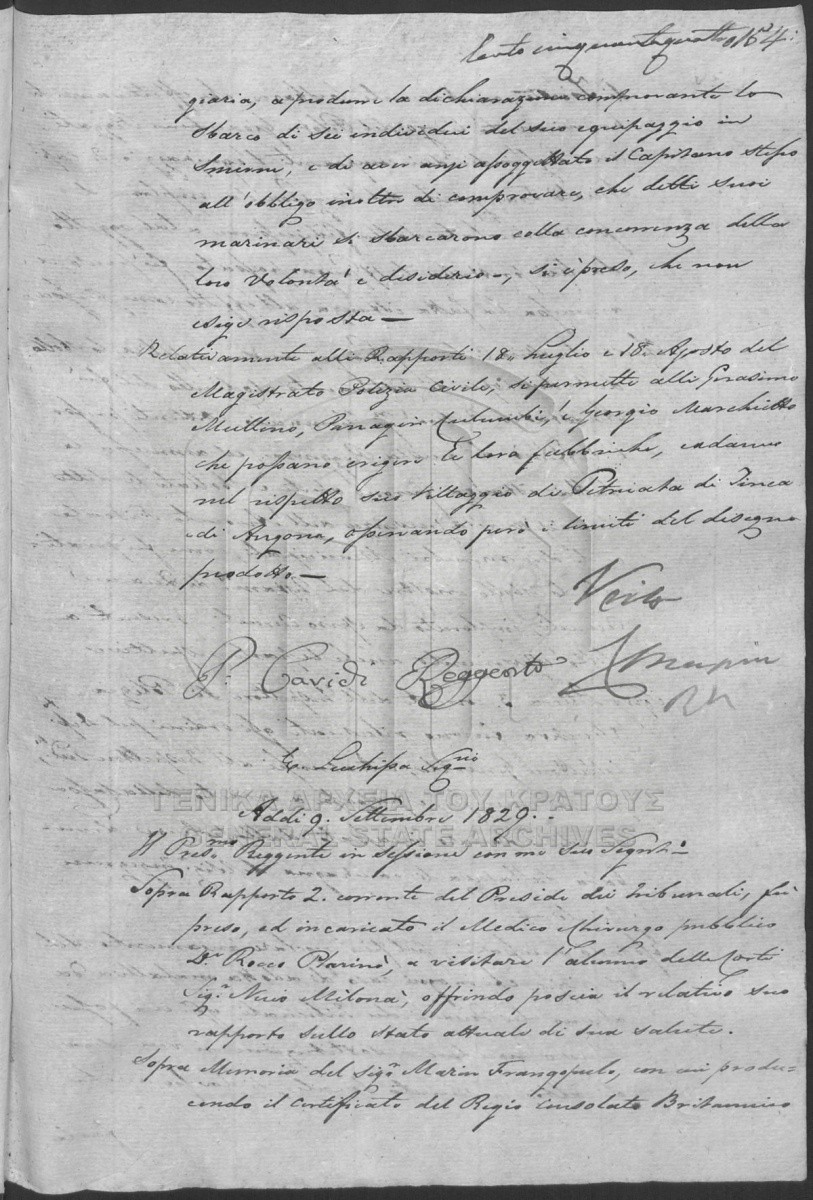 Cento cinquantaquattro 154:
giaria, a produrre la dichiarazione comprovante lo
sbarco di sei individui del suo equipaggio in
Smirne, e di aver anzi assoggettato il Capitano stesso
all'obbligo inoltre di comprovare, che detti suoi
marinari si sbarcarono colla concorrenza della
loro volontà e desiderio, si è preso, che non
esige risposta —
Relativamente alli Rapporti 18 Luglio e 18 Agosto del
Magistrato Polizia Civile, si permette alli Gerasimo
Mullino, Panagin, e Georgio Marchietto
che possano eriger le loro fabbriche, cadauno
nel rispetto suo villaggio di
di, osservando però i limiti del disegno
prodotto. —
Veito
P. Cavidi Reggente
Segrio
ΓΕΝΙΚΑ ΑΡΧΕΙΑ ΤΟΥ ΚΡΑΤΟΥΣ
Addi 9. Settembre 1829..
GENERAL STATE ARCHIVES
Il Presmo Reggente in sessione con me suo Segrio
Sopra Rapporto 2. corrente del Preside dei Tribunali, fù
preso, ed incaricato il Medico Chirurgo pubblico
Dr Rocco, a visitare l'alunno delle Corti
Sigr Nicio Milonà, offrindo poscia il relativo suo
rapporto sullo stato attuale di sua salute.
Sopra Memoria del sigr Marin Frangopulo, con cui produ-
cendo il certificato del Regio Consolato Britannico